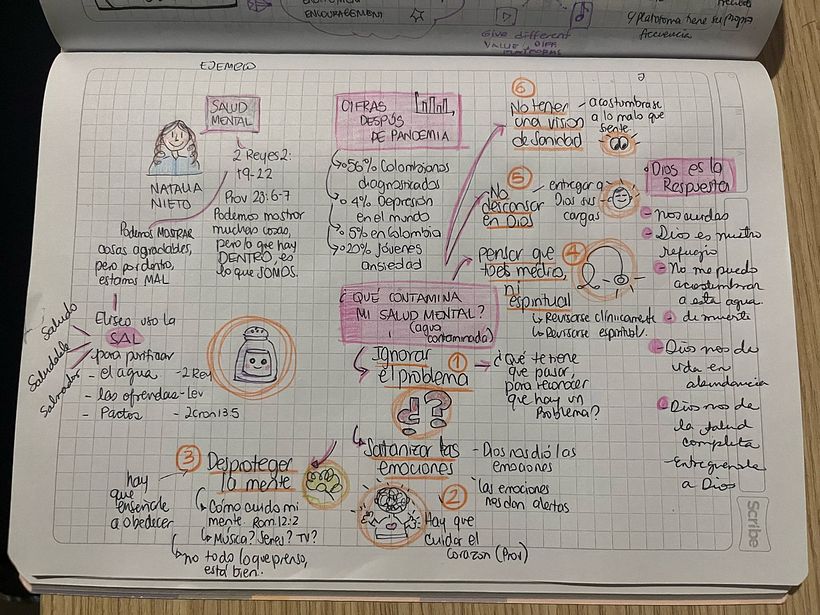 ENCOURAGEMENT
Give different
VALUE
DIFF
PLATFORMS
c/plataforma tiene su propia
frecuencia
EJEMPLO
SALUD
MENTAL
NATALIA
NIETO
2 Reyes 2:
19-22
Prov 23:6-7
Podemos mostrar
muchas cosas,
pero lo que hay
DENTRO, es
lo que SOMOS.
Podemos MOSTRAR
cosas agradables,
pero por dentro,
estamos MAL
Eliseo uso la
SAL
para purificar
- el agua - 2 Rey
- las ofrendas - Lev
- Pactos - 2Cron 13:5
Saludo
Saludable
Salvador
CIFRAS
DESPUÉS
DE PANDEMIA
56% Colombianos
diagnosticados
4% Depresión
en el mundo
5% en Colombia
20% Jóvenes
ansiedad
¿QUÉ CONTAMINA
MI SALUD MENTAL?
(agua
contaminada)
1
Ignorar
el problema
¿Qué te tiene
que pasar,
para reconocer
que hay un
Problema?
¿??
Satanizar las
emociones
- Dios nos dió las
emociones
las emociones
nos dan alertas
2
Hay que
cuidar el
corazon (Prov)
3
Desproteger
la mente
hay
que
enseñarle
a obedecer
Cómo cuido mi
mente Rom 12:2
Música? Series? TV?
no todo lo que pienso,
está bien.
4
Pensar que
todo es médico,
ni
espiritual
Revisarse clínicamente
Revisarse espiritual.
5
No
descansar
en Dios
- entregar a
Dios sus
cargas
6
No tener
una visión
de Sanidad
- acostumbrarse
a lo malo que
siente
Dios es la
Respuesta
- nos cuidas
- Dios es nuestro
refugio
- No me puedo
acostumbrar
a esta agua
de muerte
- Dios nos da
vida en
abundancia
- Dios nos da
la salud
completa
- Entreguenle
a Dios
Scribe